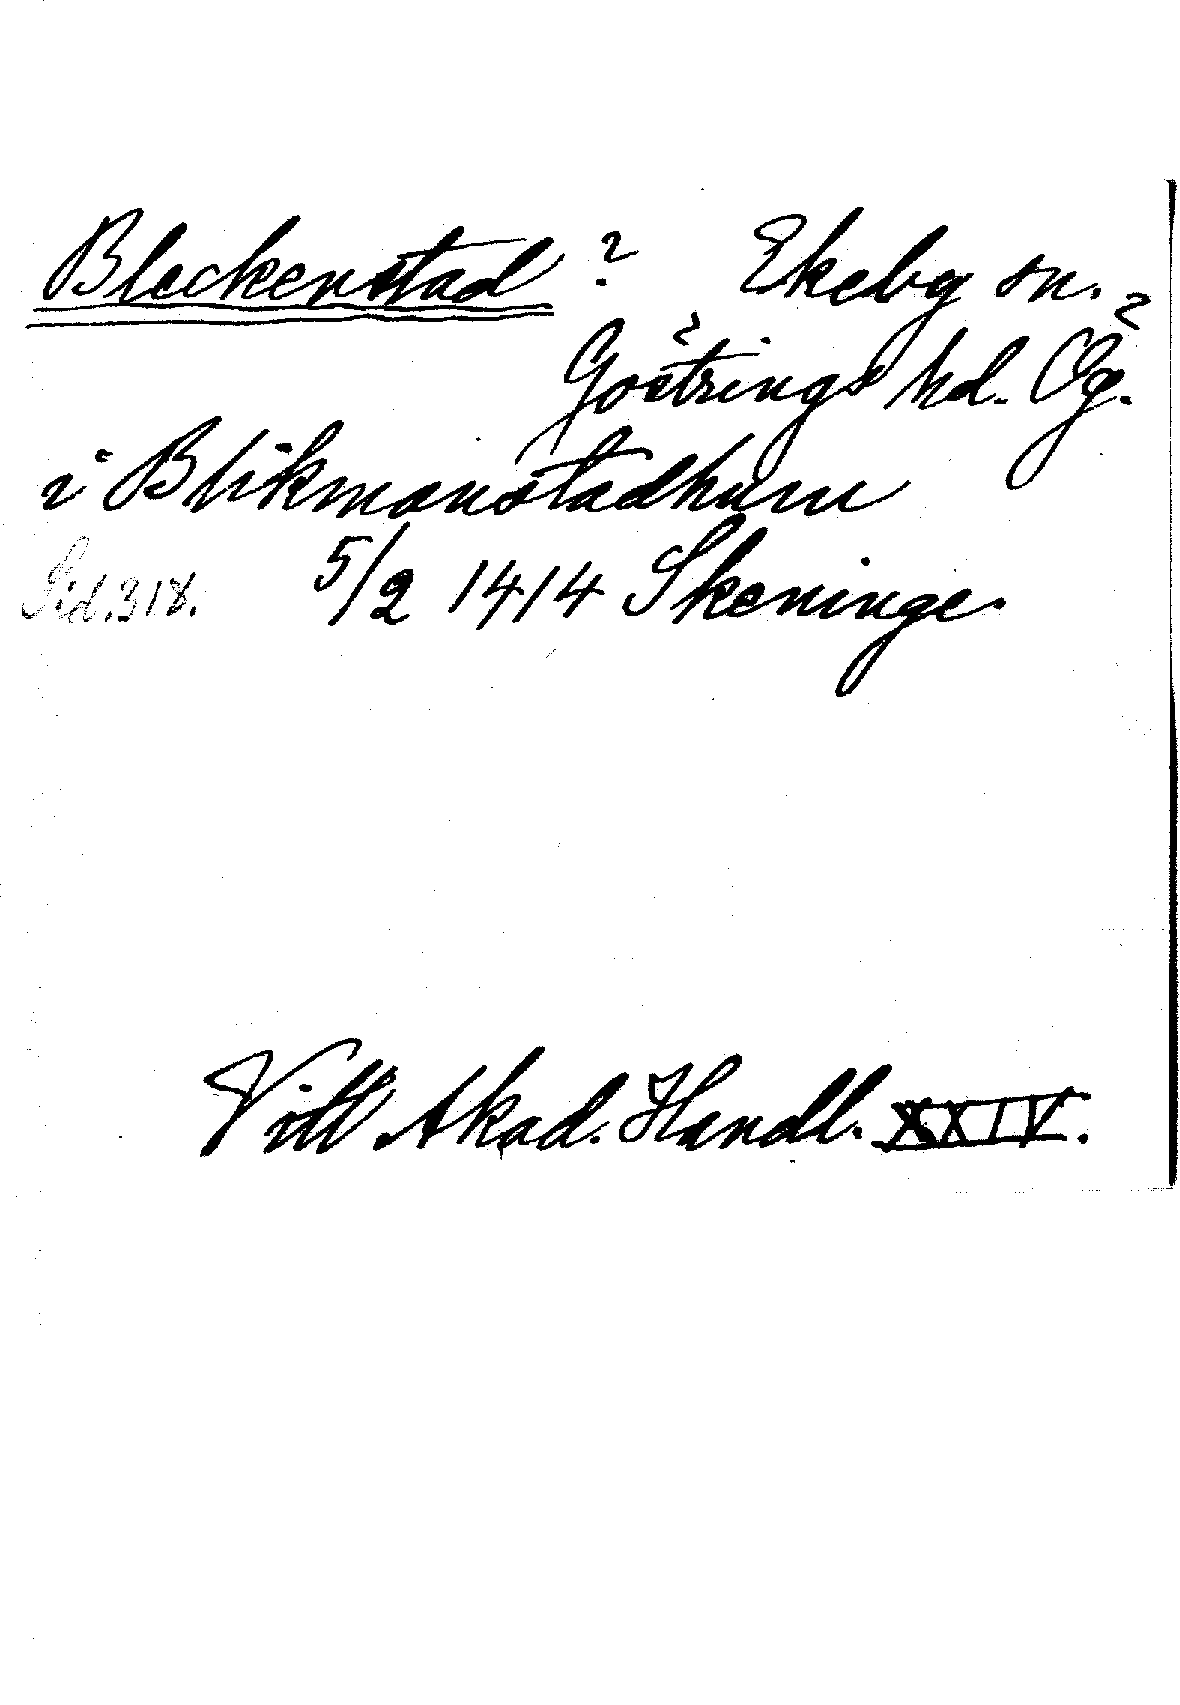 Bleckenstad? Ekeby sn.
Göstrings hd. Ög.
i Blikmanstadhum
Sid. 318. 5/2 1414 Skeninge.
Vitt Akad. Handl. XXIV.